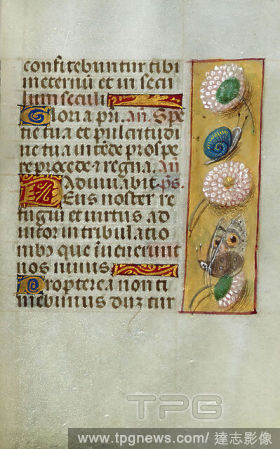 confitebuntur tibi
in eternū et in secu
lum seculi
Gloria pri. An. Spe
tie tua et pulcritudi
ne tua intēde prospe
re procede et regna. An
Adiuvabit. ps.
Deus noster re
fugiū et virtus ad
iutor in tribulatio
nibꝫ que invenerunt
nos nimis
Propterea non ti
mebimus dum tur
TPG
www.tpgnews.com/ 達志影像